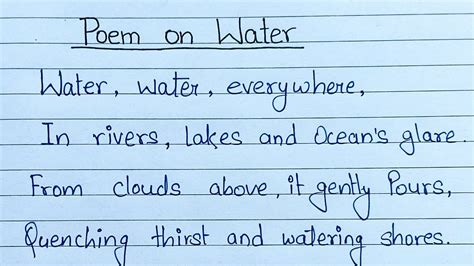 Poem on Water
Water, water, everywhere,
In rivers, lakes and Ocean's glare.
From clouds above, it gently Pours,
Quenching thirst and watering shores.